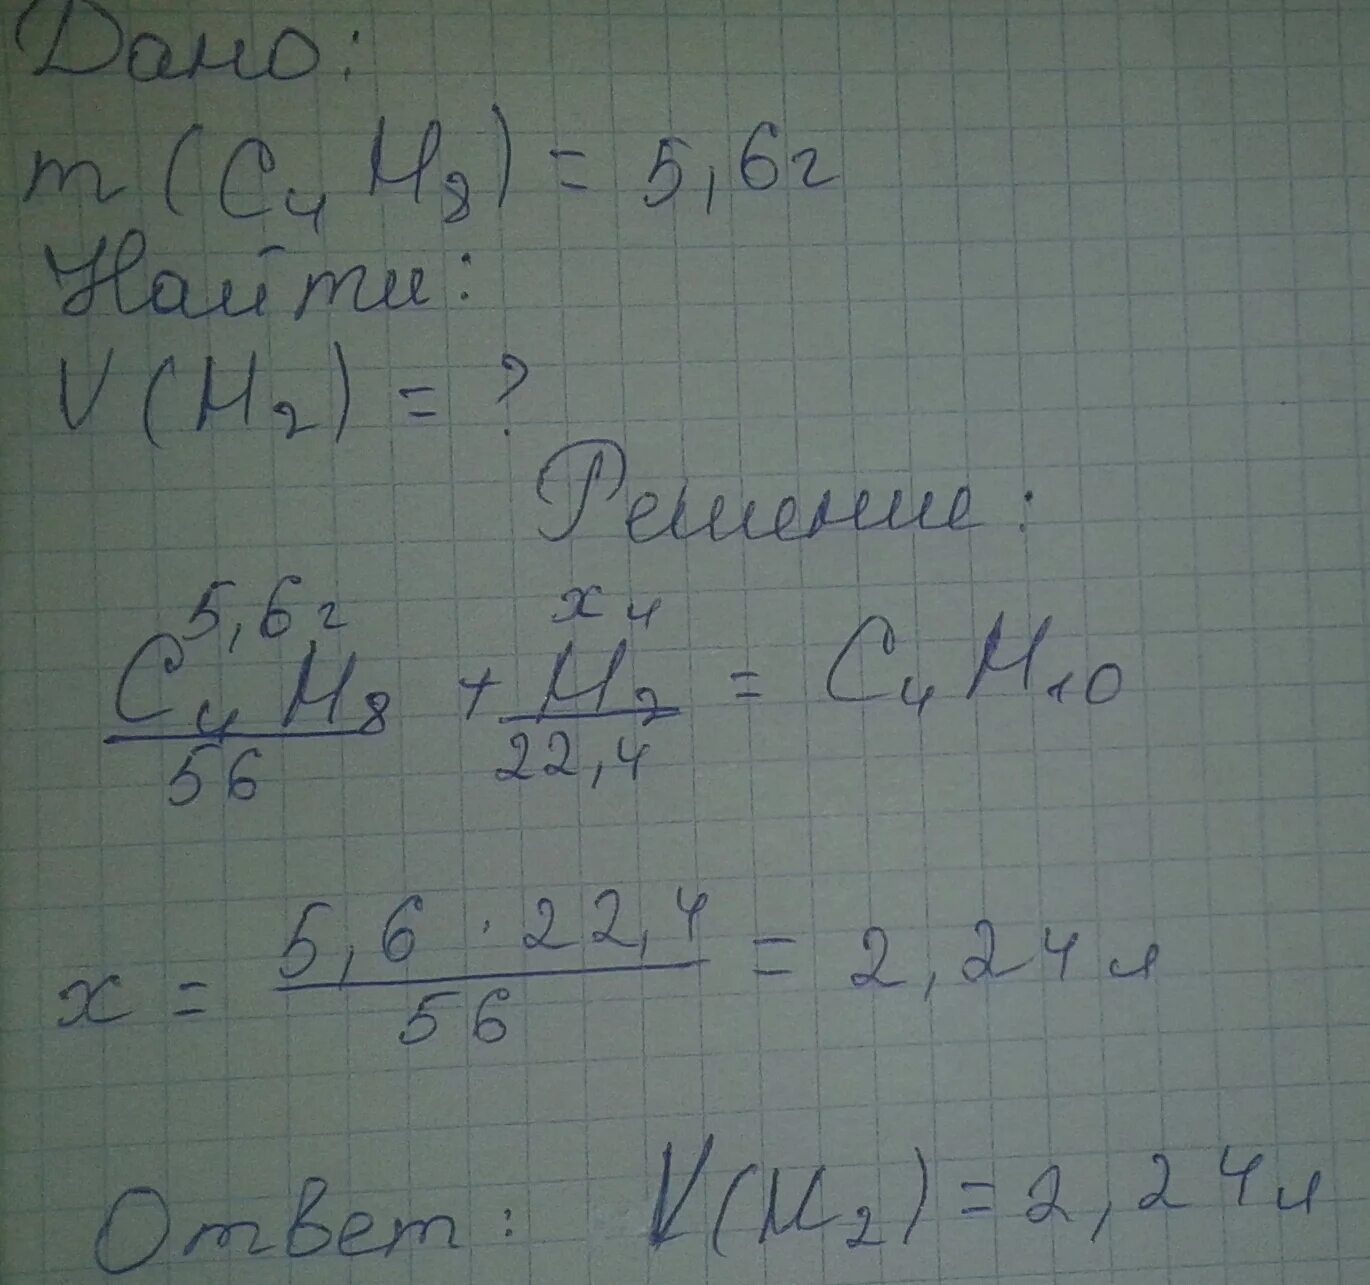 Дано:
m (C₄H₈) = 5,6г
Найти:
V (H₂) = ?
Решение:
5,6г x л
C₄H₈ + H₂ = C₄H₁₀
56 22,4
x = 5,6 · 22,4 / 56 = 2,24 л
Ответ: V(H₂) = 2,24 л